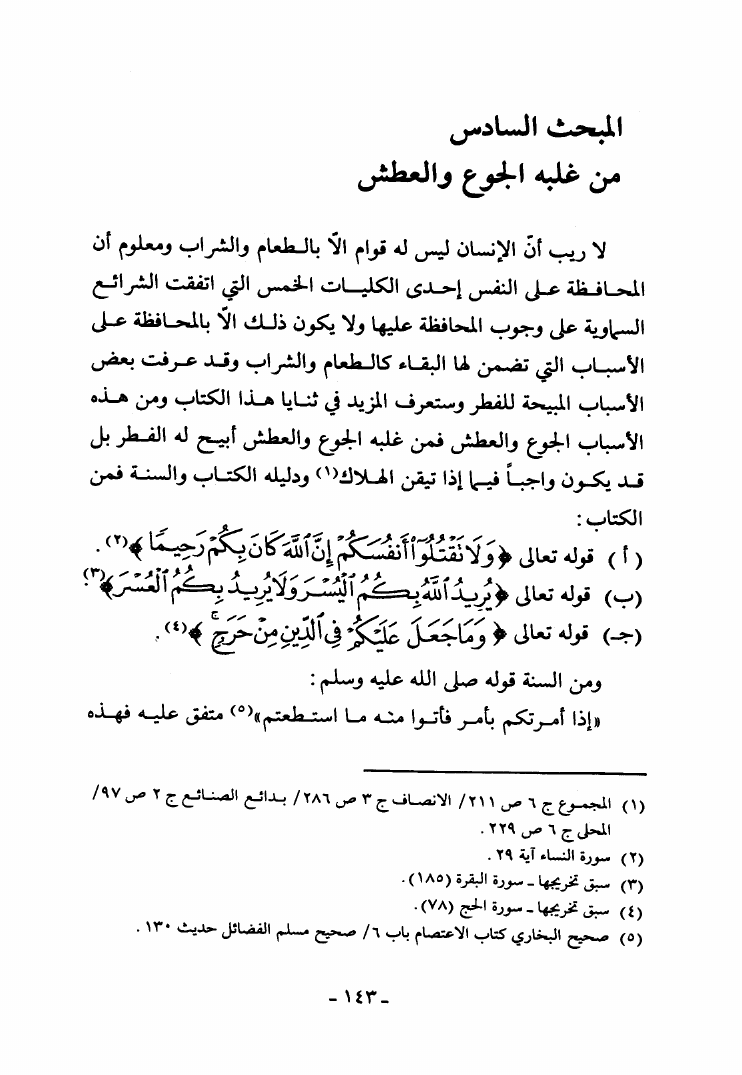 المبحث السادس
من غلبه الجوع والعطش
لا ريب أنّ الإنسان ليس له قوام الاّ بالطعام والشراب ومعلوم أن
المحافظة على النفس إحدى الكليات الخمس التي اتفقت الشرائع
السماوية على وجوب المحافظة عليها ولا يكون ذلك الاّ بالمحافظة على
الأسباب التي تضمن لها البقاء كالطعام والشراب وقد عرفت بعض
الأسباب المبيحة للفطر وستعرف المزيد في ثنايا هذا الكتاب ومن هذه
الأسباب الجوع والعطش فمن غلبه الجوع والعطش أبيح له الفطر بل
قد يكون واجباً فيما إذا تيقن الهلاك(١) ودليله الكتاب والسنة فمن
الكتاب :
( أ ) قوله تعالى ﴿ وَلَا نَقْتُلُوٓا۟ أَنفُسَكُمْ إِنَّ ٱللَّهَ كَانَ بِكُمْ رَحِيمًا ﴾(٢) .
(ب) قوله تعالى ﴿ يُرِيدُ ٱللَّهُ بِكُمُ ٱلْيُسْرَ وَلَا يُرِيدُ بِكُمُ ٱلْعُسْرَ ﴾(٣) .
(جـ) قوله تعالى ﴿ وَمَا جَعَلَ عَلَيْكُمْ فِى ٱلدِّينِ مِنْ حَرَجٍ ۚ ﴾(٤) .
ومن السنة قوله صلى الله عليه وسلم :
«إذا أمرتكم بأمر فأتوا منه ما استطعتم»(٥) متفق عليه فهذه
(١) المجموع ج ٦ ص ٢١١/ الانصاف ج ٣ ص ٢٨٦/ بدائع الصنائع ج ٢ ص ٩٧/
المحلى ج ٦ ص ٢٢٩ .
(٢) سورة النساء آية ٢٩ .
(٣) سبق تخريجها ـ سورة البقرة (١٨٥) .
(٤) سبق تخريجها ـ سورة الحج (٧٨) .
(٥) صحيح البخاري كتاب الاعتصام باب ٦/ صحيح مسلم الفضائل حديث ١٣٠ .
ـ ١٤٣ ـ